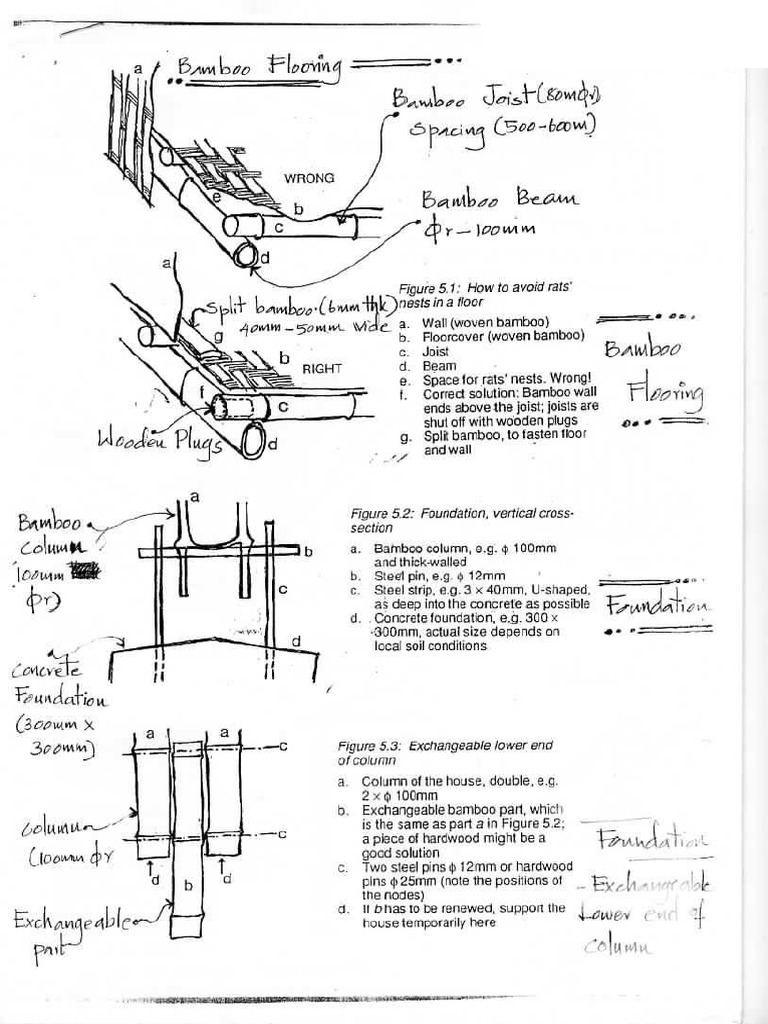 a
Bamboo Flooring
Bamboo Joist (80mϕr)
Spacing (500-600m)
WRONG
e
b
c
Bamboo Beam
ϕr-100mm
d
a
Split bamboo. (6mm thk)
40mm-50mm wide
g
b
RIGHT
f
c
Wooden Plugs
d
Figure 5.1: How to avoid rats'
nests in a floor
a. Wall (woven bamboo)
b. Floorcover (woven bamboo)
c. Joist
d. Beam
e. Space for rats' nests. Wrong!
f. Correct solution: Bamboo wall
ends above the joist; joists are
shut off with wooden plugs
g. Split bamboo, to fasten floor
and wall
Bamboo
Flooring
a
Bamboo
Column
100mm
ϕr)
b
c
d
Concrete
Foundation
(300mm x
300mm)
Figure 5.2: Foundation, vertical cross-
section
a. Bamboo column, e.g. ϕ 100mm
and thick-walled
b. Steel pin, e.g. ϕ 12mm
c. Steel strip, e.g. 3 × 40mm, U-shaped,
as deep into the concrete as possible
d. Concrete foundation, e.g. 300 ×
300mm, actual size depends on
local soil conditions
Foundation
a
a
c
Column
(100mm ϕr
c
d
b
d
Exchangeable
part
Figure 5.3: Exchangeable lower end
of column
a. Column of the house, double, e.g.
2 × ϕ 100mm
b. Exchangeable bamboo part, which
is the same as part a in Figure 5.2;
a piece of hardwood might be a
good solution
c. Two steel pins ϕ 12mm or hardwood
pins ϕ 25mm (note the positions of
the nodes)
d. If b has to be renewed, support the
house temporarily here
Foundation
- Exchangeable
Lower end of
column